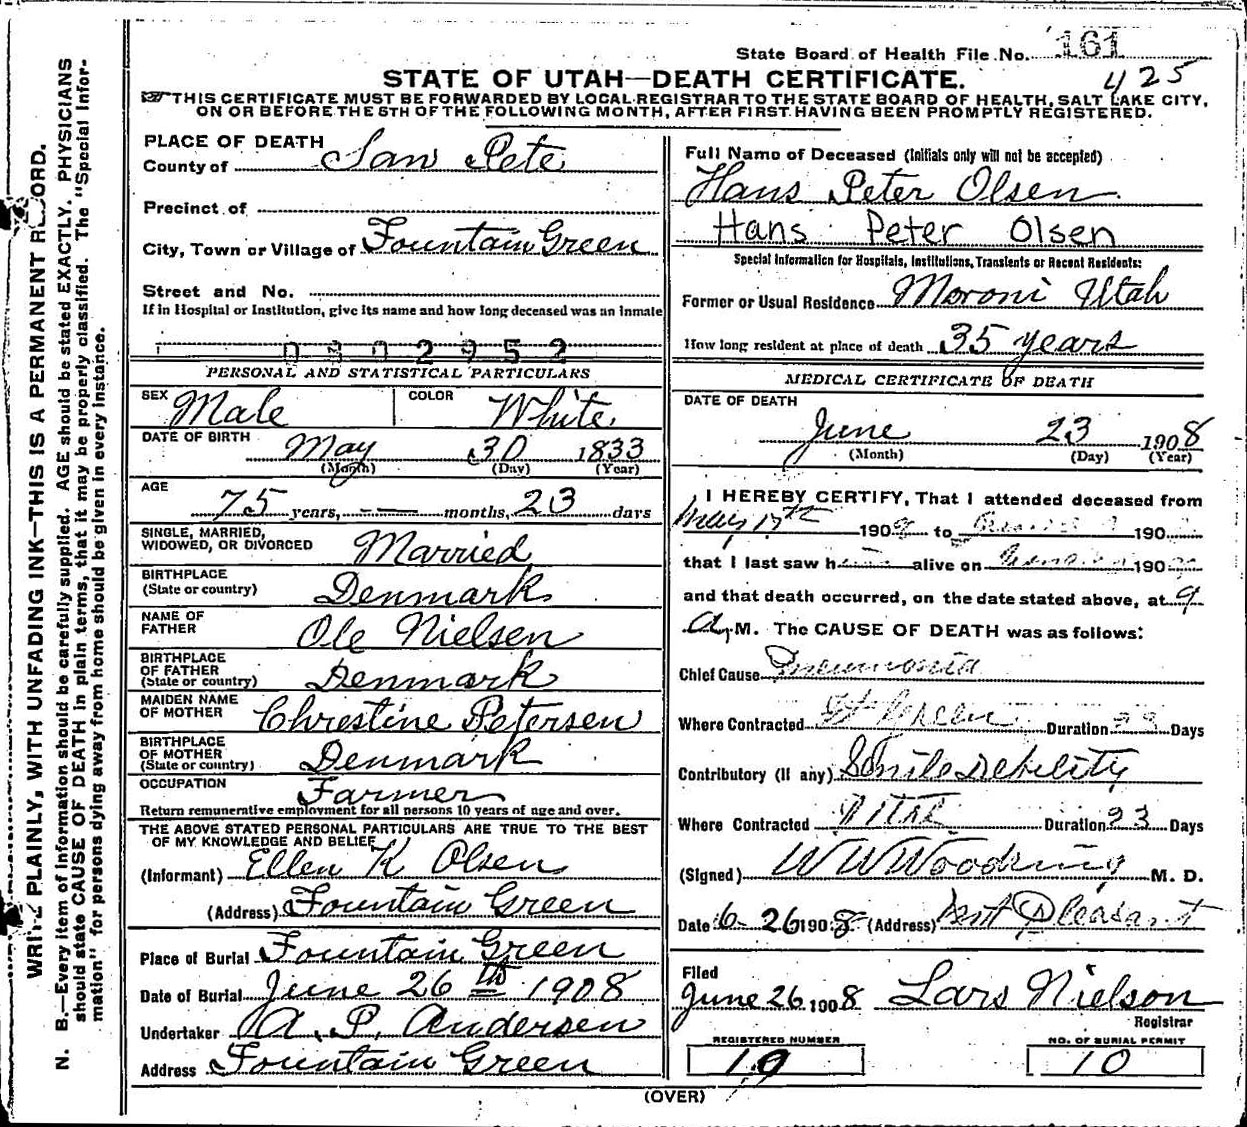 State Board of Health File No. 161
425
STATE OF UTAH—DEATH CERTIFICATE.
THIS CERTIFICATE MUST BE FORWARDED BY LOCAL REGISTRAR TO THE STATE BOARD OF HEALTH, SALT LAKE CITY,
ON OR BEFORE THE 5TH OF THE FOLLOWING MONTH, AFTER FIRST HAVING BEEN PROMPTLY REGISTERED.
WRITE PLAINLY, WITH UNFADING INK—THIS IS A PERMANENT RECORD.
N. B.—Every item of information should be carefully supplied. AGE should be stated EXACTLY. PHYSICIANS
should state CAUSE OF DEATH in plain terms, that it may be properly classified. The "Special Infor-
mation" for persons dying away from home should be given in every instance.
PLACE OF DEATH
County of San Pete
Precinct of
City, Town or Village of Fountain Green
Street and No.
If in Hospital or Institution, give its name and how long deceased was an inmate
0302952
PERSONAL AND STATISTICAL PARTICULARS
SEX Male COLOR White.
DATE OF BIRTH May 30 1833
(Month) (Day) (Year)
AGE
75 years, — — months, 23 days
SINGLE, MARRIED,
WIDOWED, OR DIVORCED Married
BIRTHPLACE
(State or country) Denmark
NAME OF
FATHER Ole Nielsen
BIRTHPLACE
OF FATHER
(State or country) Denmark
MAIDEN NAME
OF MOTHER Christine Petersen
BIRTHPLACE
OF MOTHER
(State or country) Denmark
OCCUPATION Farmer
Return remunerative employment for all persons 10 years of age and over.
THE ABOVE STATED PERSONAL PARTICULARS ARE TRUE TO THE BEST
OF MY KNOWLEDGE AND BELIEF
(Informant) Ellen K Olsen
(Address) Fountain Green
Place of Burial Fountain Green
Date of Burial June 26th 1908
Undertaker A. P. Andersen
Address Fountain Green
Full Name of Deceased (Initials only will not be accepted)
Hans Peter Olsen
Hans Peter Olsen
Special Information for Hospitals, Institutions, Transients or Recent Residents:
Former or Usual Residence Moroni Utah
How long resident at place of death 35 years
MEDICAL CERTIFICATE OF DEATH
DATE OF DEATH
June 23 1908
(Month) (Day) (Year)
I HEREBY CERTIFY, That I attended deceased from
190 to 190
that I last saw h alive on 190
and that death occurred, on the date stated above, at 9
A. M. The CAUSE OF DEATH was as follows:
Chief Cause Pneumonia
Where Contracted Ft Green Duration Days
Contributory (If any) Senile Debility
Where Contracted Utah Duration 23 Days
(Signed) W W Woodring M. D.
Date 6-26 1908 (Address) Mt Pleasant
Filed
June 26 1908 Lars Nielson
Registrar
REGISTERED NUMBER
19
NO. OF BURIAL PERMIT
10
(OVER)